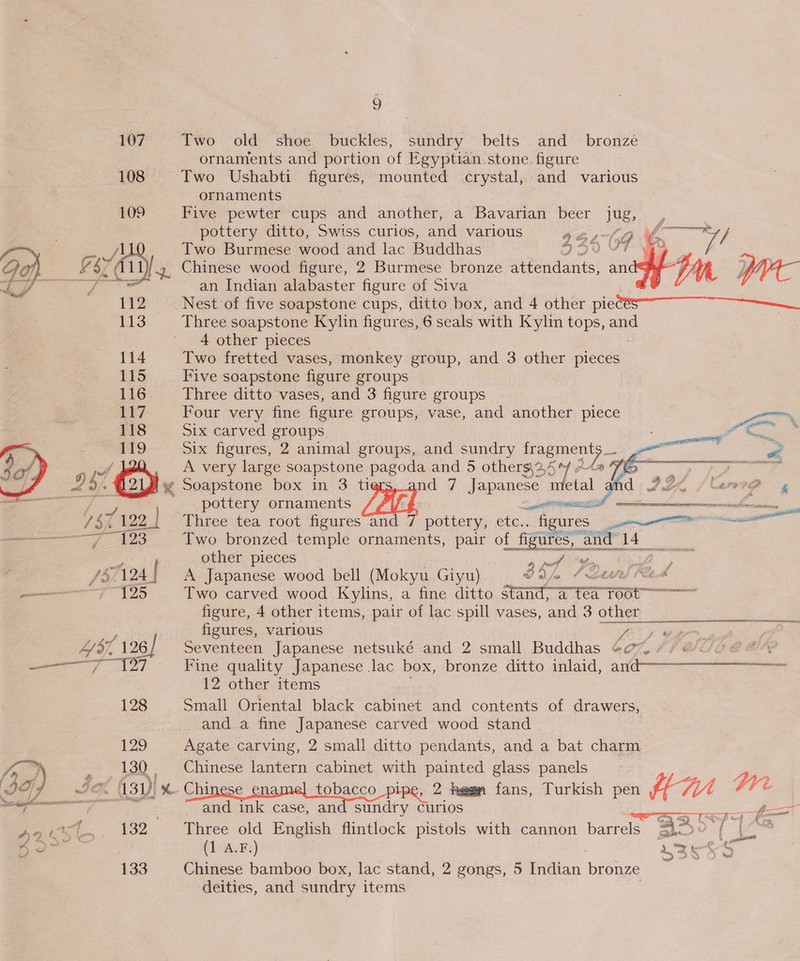 9
107 Two old shoe buckles, sundry belts and bronze
ornaments and portion of Egyptian stone figure
108 Two Ushabti figures, mounted crystal, and various
ornaments
109 Five pewter cups and another, a Bavarian beer jug,
pottery ditto, Swiss curios, and various
110 Two Burmese wood and lac Buddhas
111 Chinese wood figure, 2 Burmese bronze attendants, and
an Indian alabaster figure of Siva
112 Nest of five soapstone cups, ditto box, and 4 other pieces
113 Three soapstone Kylin figures, 6 seals with Kylin tops, and
4 other pieces
114 Two fretted vases, monkey group, and 3 other pieces
115 Five soapstone figure groups
116 Three ditto vases, and 3 figure groups
117 Four very fine figure groups, vase, and another piece
118 Six carved groups
119 Six figures, 2 animal groups, and sundry fragments
120 A very large soapstone pagoda and 5 others
121 Soapstone box in 3 tiers, and 7 Japanese metal and
pottery ornaments
122 Three tea root figures and 7 pottery, etc.. figures
123 Two bronzed temple ornaments, pair of figures, and 14
other pieces
124 A Japanese wood bell (Mokyu Giyu)
125 Two carved wood Kylins, a fine ditto stand, a tea root
figure, 4 other items, pair of lac spill vases, and 3 other
figures, various
126 Seventeen Japanese netsuké and 2 small Buddhas
127 Fine quality Japanese lac box, bronze ditto inlaid, and
12 other items
128 Small Oriental black cabinet and contents of drawers,
and a fine Japanese carved wood stand
129 Agate carving, 2 small ditto pendants, and a bat charm
130 Chinese lantern cabinet with painted glass panels
131 Chinese enamel tobacco pipe, 2 fans, Turkish pen
and ink case, and sundry curios
132 Three old English flintlock pistols with cannon barrels
(1 A.F.)
133 Chinese bamboo box, lac stand, 2 gongs, 5 Indian bronze
deities, and sundry items